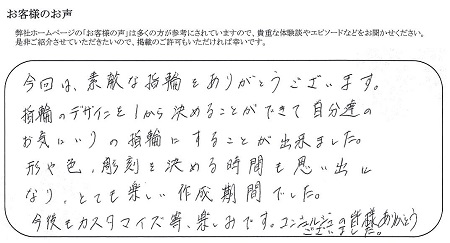 お客様のお声
弊社ホームページの「お客様の声」は多くの方が参考にされていますので、貴重な体験談やエピソードなどをお聞かせください。
是非ご紹介させていただきたいので、掲載のご許可もいただければ幸いです。
今回は、素敵な指輪をありがとうございます。
指輪のデザインを1から決めることができて自分達の
お気にいりの指輪にすることが出来ました。
形や色、彫刻を決める時間も思い出に
なり、とても楽しい作成期間でした。
今後もカスタマイズ等、楽しみです。コンシェルジュの皆様ありがとう
ございました。